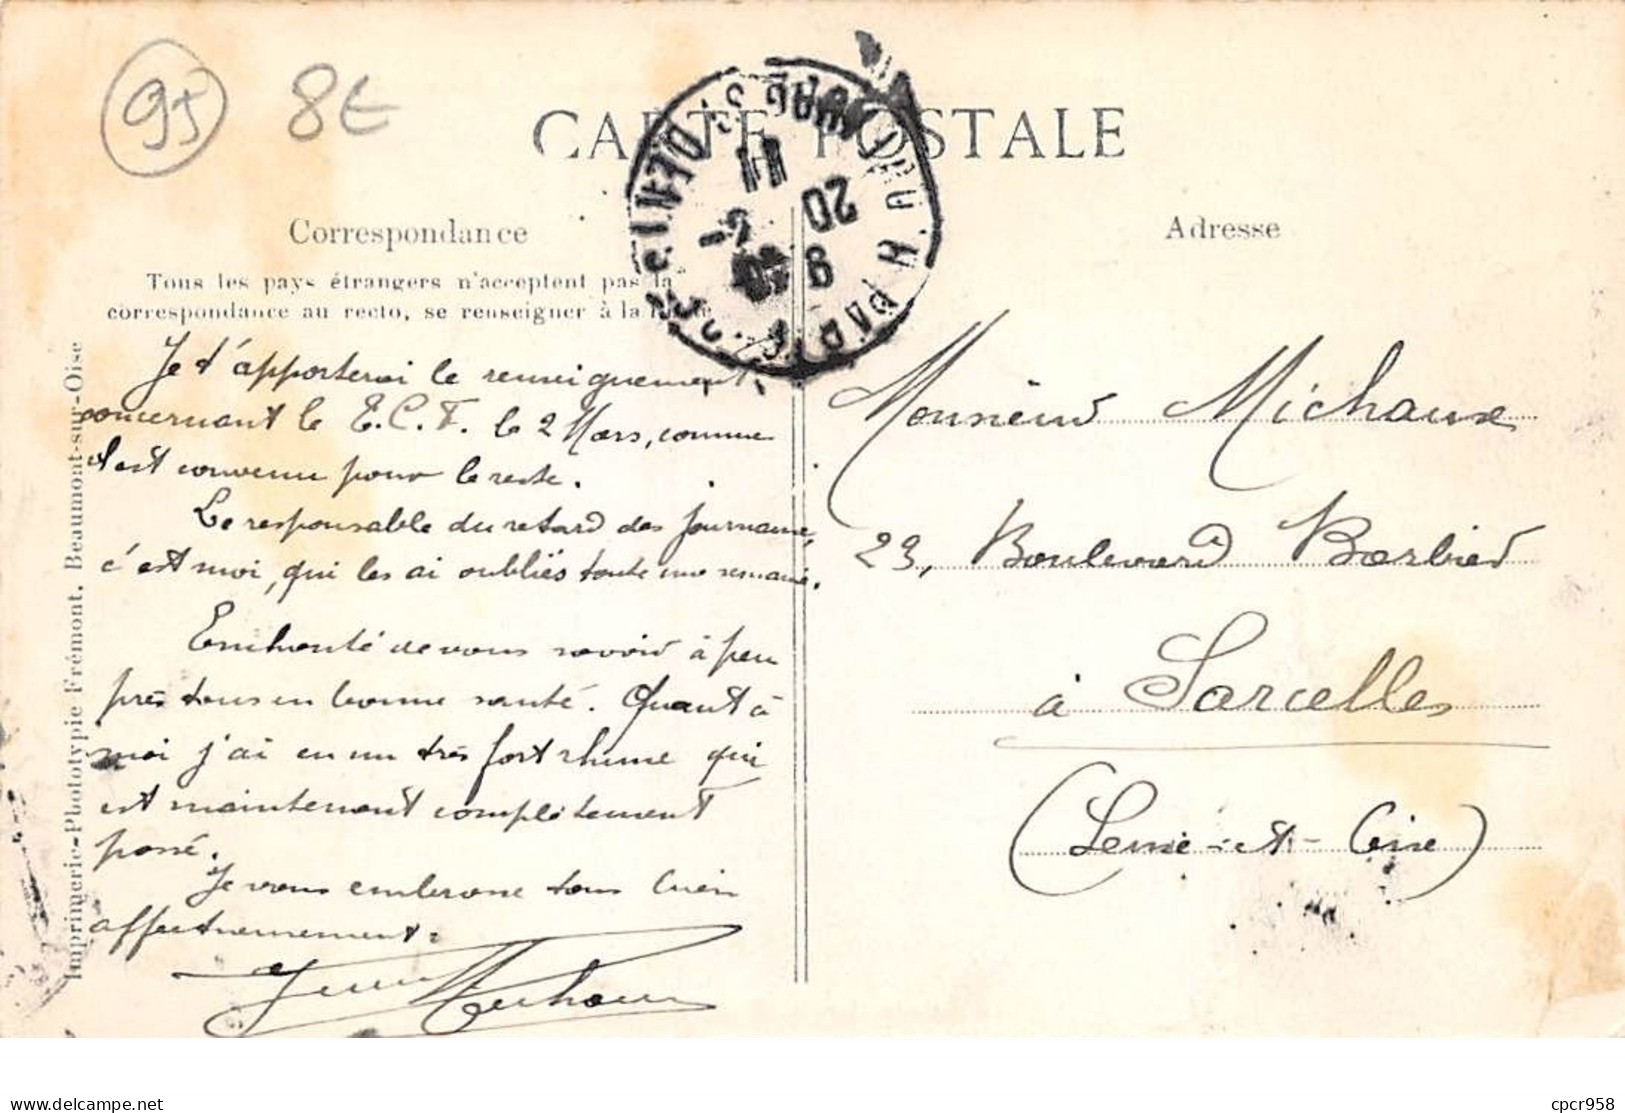 95 8E
CARTE POSTALE
Correspondance
Tous les pays étrangers n'acceptent pas la
correspondance au recto, se renseigner à la
Je t'apporterai le renseignement
concernant le T.C.F. le 2 Mars, comme
c'est convenu pour le reste.
Le responsable du retard des journaux,
c'est moi, qui les ai oubliés toute une semaine.
Enchanté de vous savoir à peu
près tous en bonne santé. Quant à
moi j'ai eu un très fort rhume qui
est maintenant complètement
passé.
Je vous embrasse tous bien
affectueusement.
Imprimerie-Phototypie Frémont. Beaumont-sur-Oise
11
20
9
Adresse
Monsieur Michaux
23, Boulevard Barbier
à Sarcelles
(Seine-et-Oise)
cpcr958